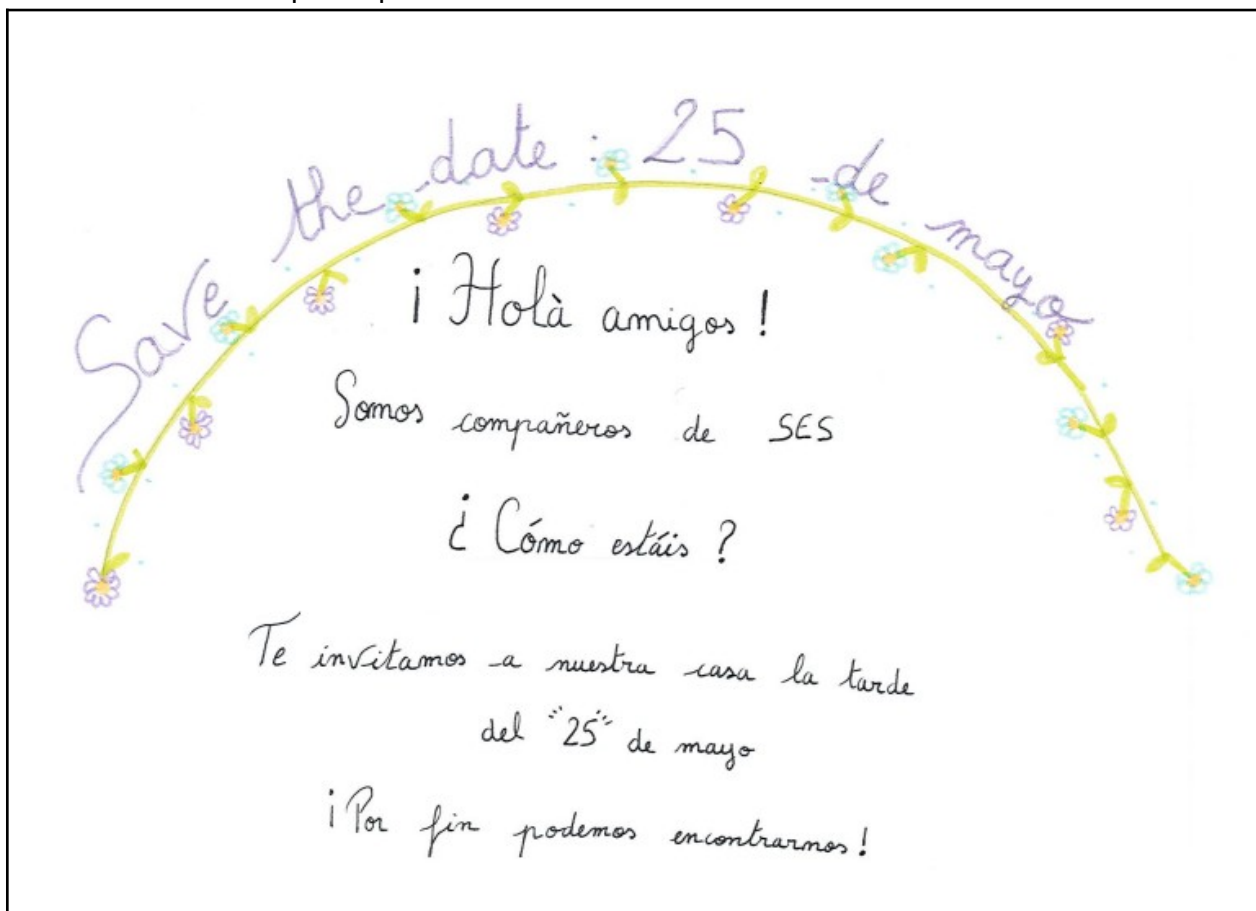 Save the date : 25 de mayo
¡ Holà amigos !
Somos compañeros de SES
¿ Cómo estáis ?
Te invitamos a nuestra casa la tarde
del "25" de mayo
¡ Por fin podemos encontrarnos !